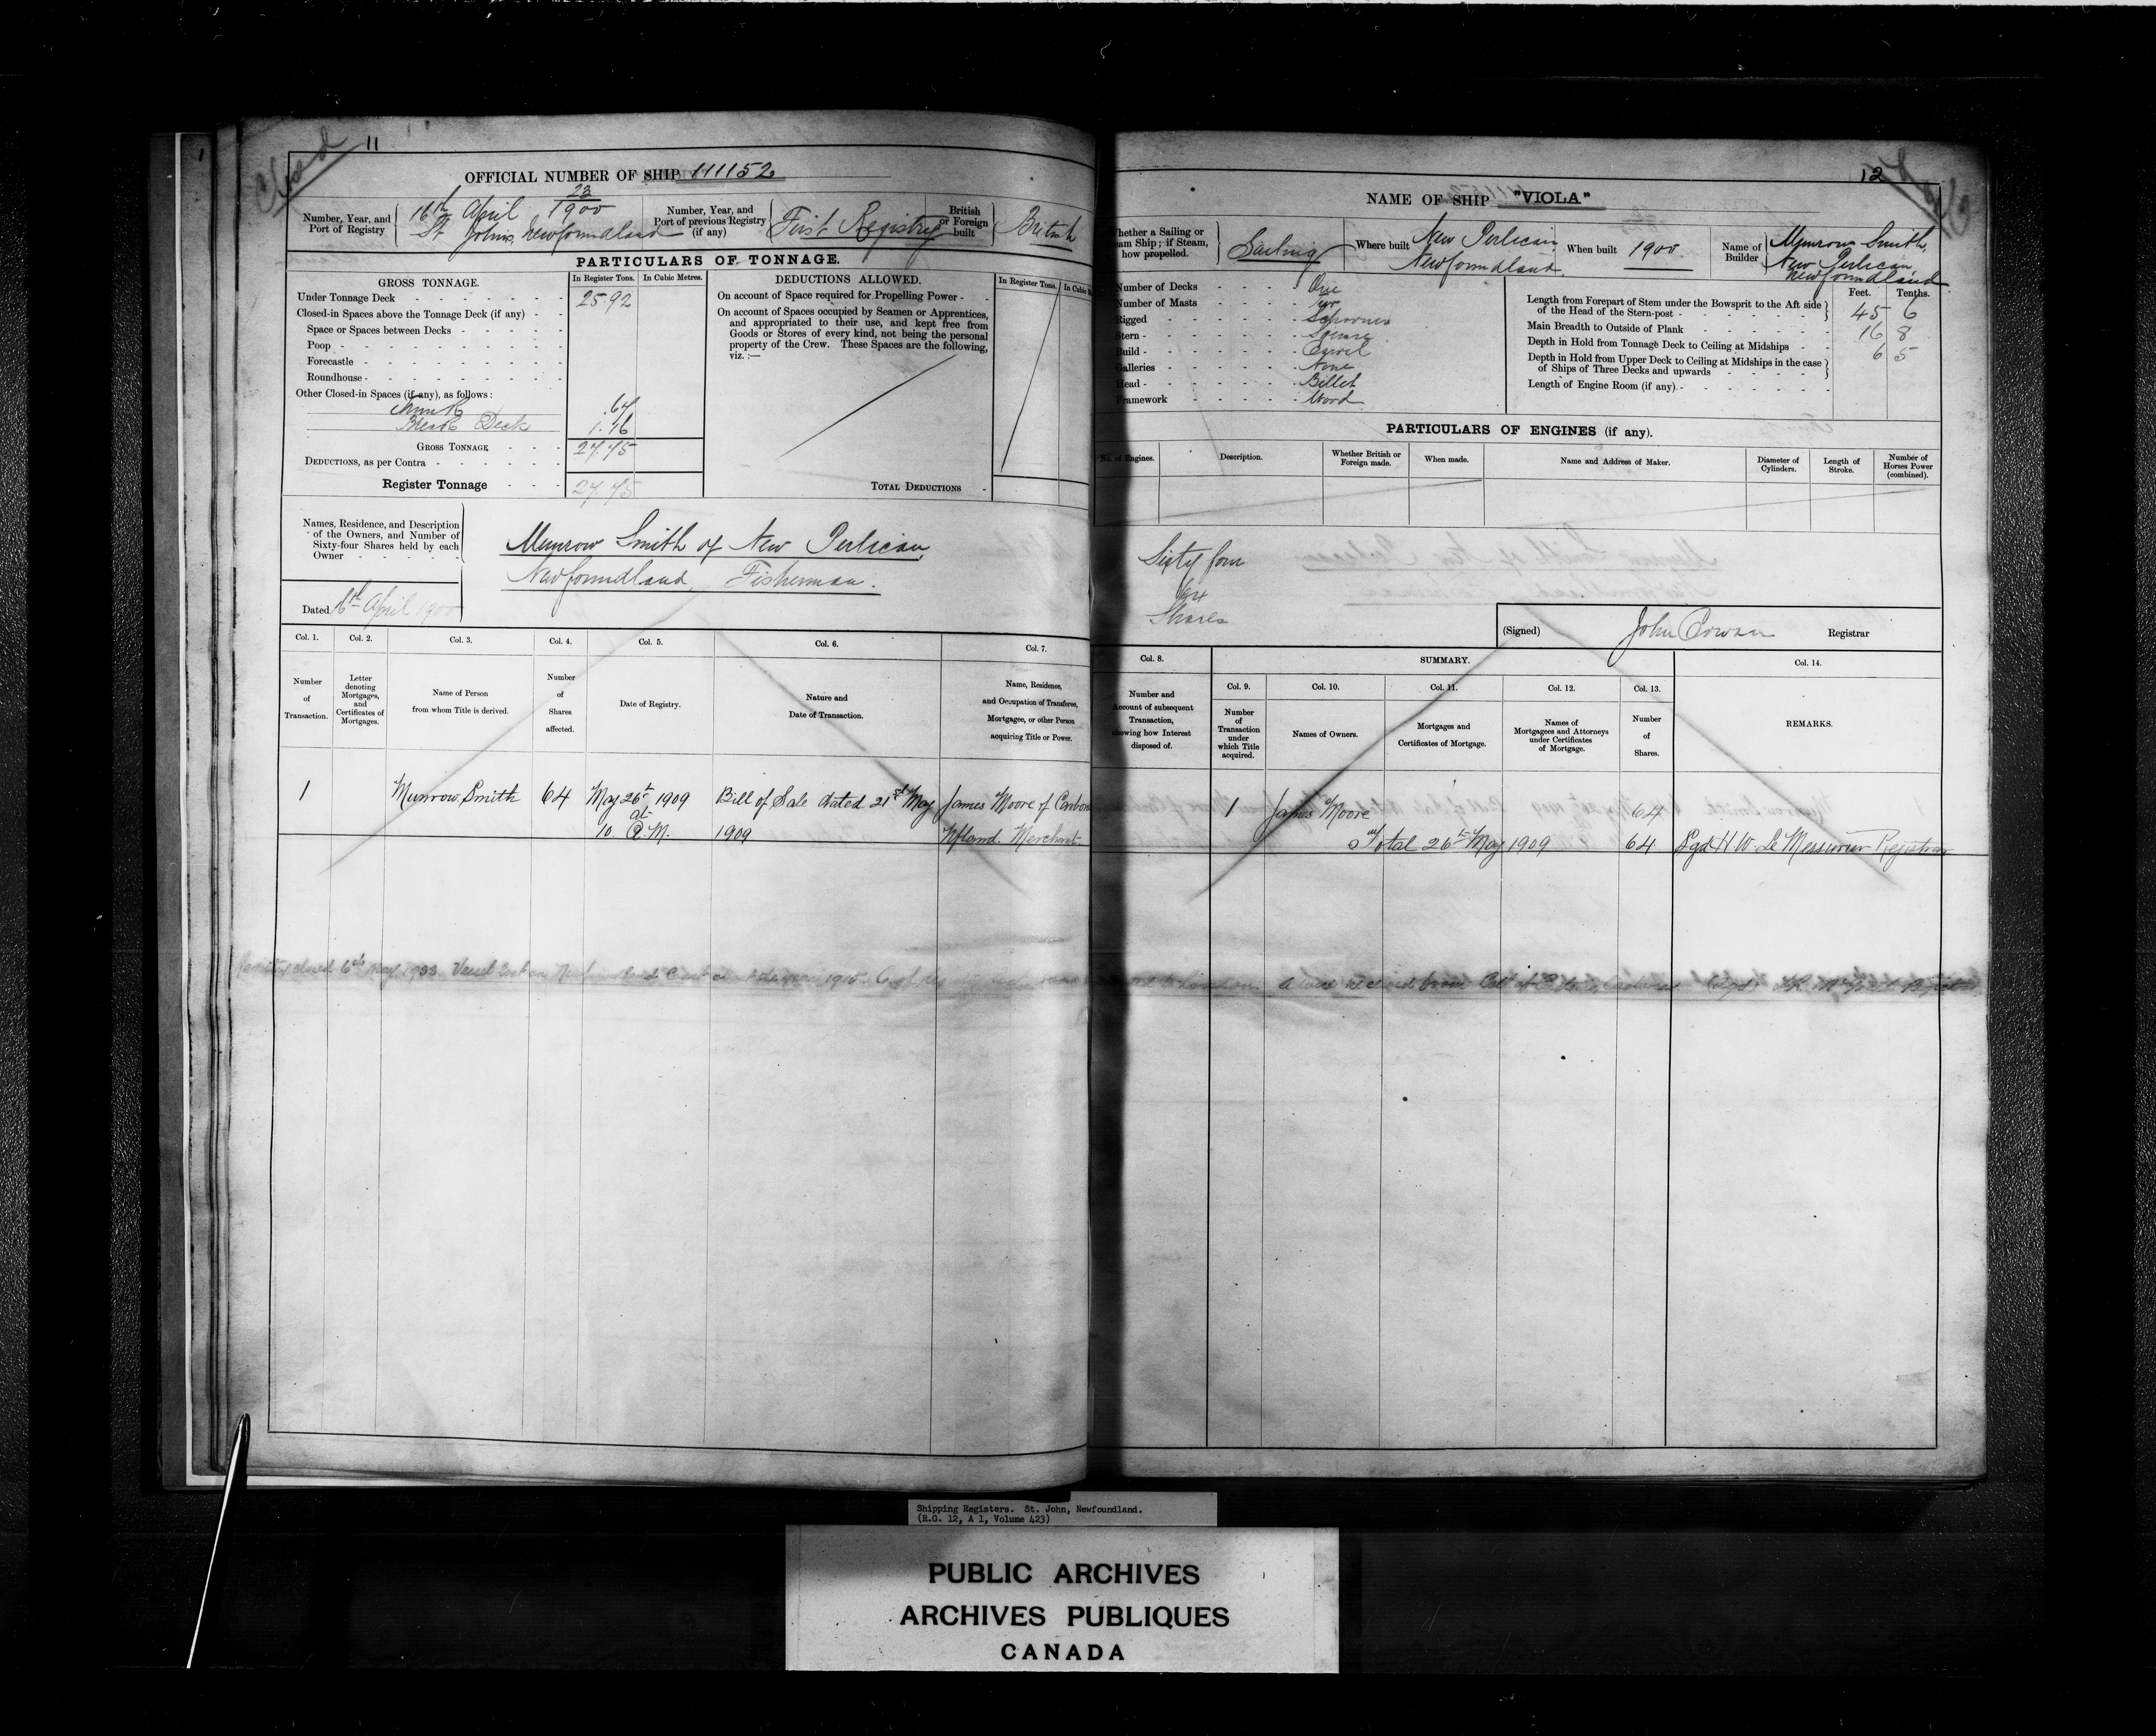 Closed
11
OFFICIAL NUMBER OF SHIP 111152
Number, Year, and Port of Registry
16th April 23/1900
St Johns, Newfoundland
Number, Year, and Port of previous Registry (if any)
First Registry
British or Foreign built
British
PARTICULARS OF TONNAGE.
GROSS TONNAGE.
In Register Tons.
In Cubic Metres.
DEDUCTIONS ALLOWED.
In Register Tons.
Under Tonnage Deck 25.92
Closed-in Spaces above the Tonnage Deck (if any)
Space or Spaces between Decks
Poop
Forecastle
Roundhouse
Other Closed-in Spaces (if any), as follows:
.67
Break Deck 1.16
GROSS TONNAGE 27.75
DEDUCTIONS, as per Contra
Register Tonnage 27.75
On account of Space required for Propelling Power
On account of Spaces occupied by Seamen or Apprentices,
and appropriated to their use, and kept free from
Goods or Stores of every kind, not being the personal
property of the Crew. These Spaces are the following,
viz.:—
TOTAL DEDUCTIONS
Names, Residence, and Description
of the Owners, and Number of
Sixty-four Shares held by each
Owner
Munrow Smith of New Perlican,
Newfoundland, Fisherman.
Dated 16th April 1900
Col. 1.
Number of Transaction.
Col. 2.
Letter denoting Mortgages, and Certificates of Mortgages.
Col. 3.
Name of Person from whom Title is derived.
Col. 4.
Number of Shares affected.
Col. 5.
Date of Registry.
Col. 6.
Nature and Date of Transaction.
Col. 7.
Name, Residence, and Occupation of Transferee, Mortgagee, or other Person acquiring Title or Power.
1 Munrow Smith 64 May 26th 1909 Bill of Sale dated 21st May James Moore of
at 10 A.M. 1909 Nfland. Merchant.
closed 6th May 1933. Vessel lost on Newfoundland Coast
12
NAME OF SHIP "VIOLA"
Whether a Sailing or Steam Ship; if Steam, how propelled.
Sailing
Where built
New Perlican
Newfoundland
When built 1900
Name of Builder
Munrow Smith,
New Perlican,
Newfoundland
Number of Decks One
Number of Masts Two
Rigged Schooner
Stern Square
Build Carvel
Galleries None
Head Billet
Framework Wood
Feet. Tenths.
Length from Forepart of Stem under the Bowsprit to the Aft side
of the Head of the Stern-post 45 6
Main Breadth to Outside of Plank 16 8
Depth in Hold from Tonnage Deck to Ceiling at Midships 6 5
Depth in Hold from Upper Deck to Ceiling at Midships in the case
of Ships of Three Decks and upwards
Length of Engine Room (if any)
PARTICULARS OF ENGINES (if any).
No. of Engines.
Description.
Whether British or Foreign made.
When made.
Name and Address of Maker.
Diameter of Cylinders.
Length of Stroke.
Number of Horses Power (combined).
Sixty four
64
Shares
(Signed) John Cowan Registrar
Col. 8.
Number and Account of subsequent Transaction, showing how Interest disposed of.
SUMMARY.
Col. 9.
Number of Transaction under which Title acquired.
Col. 10.
Names of Owners.
Col. 11.
Mortgages and Certificates of Mortgage.
Col. 12.
Names of Mortgagees and Attorneys under Certificates of Mortgage.
Col. 13.
Number of Shares.
Col. 14.
REMARKS.
1 James Moore 64
Total 26th May 1909 64 Sgd H W Le Messurier Registrar
Shipping Registers. St. John, Newfoundland.
(R.G. 12, A 1, Volume 423)
PUBLIC ARCHIVES
ARCHIVES PUBLIQUES
CANADA